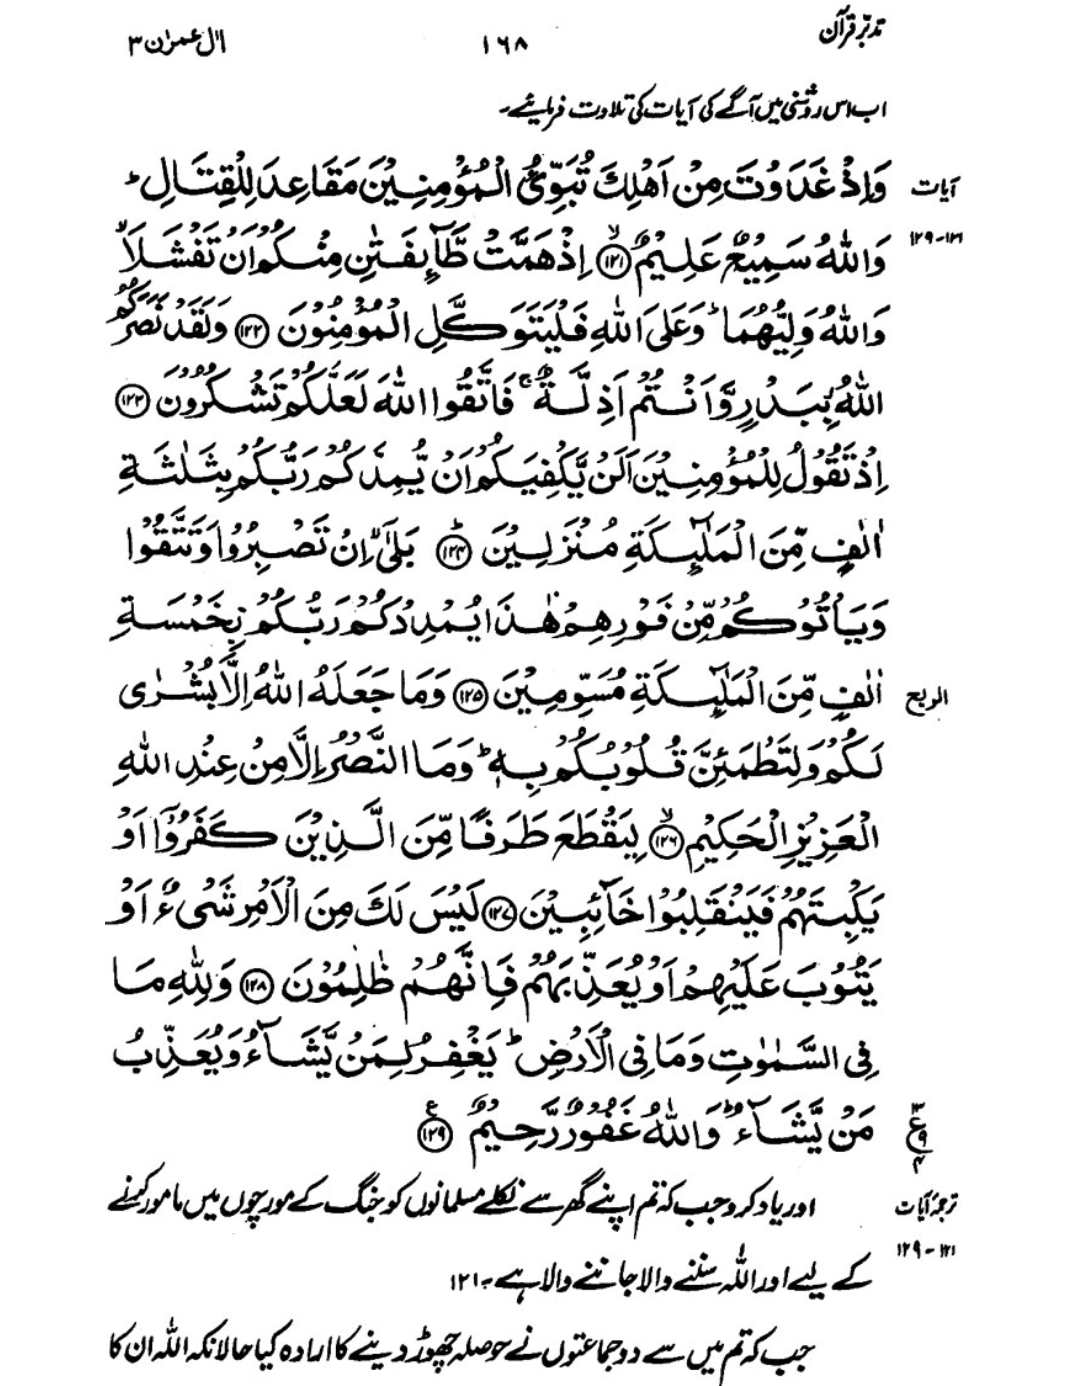 تدبّرِ قرآن ۱۶۸ اٰل عمرٰن ۳
اب اس روشنی میں آگے کی آیات کی تلاوت فرمائیے۔
آیات وَاِذْ غَدَوْتَ مِنْ اَهْلِكَ تُبَوِّئُ الْمُؤْمِنِيْنَ مَقَاعِدَ لِلْقِتَالِ ؕ
۱۲۱-۱۲۹ وَاللّٰهُ سَمِيْعٌ عَلِيْمٌ ۙ﴿۱۲۱﴾ اِذْ هَمَّتْ طَّآئِفَتٰنِ مِنْكُمْ اَنْ تَفْشَلَا ۙ
وَاللّٰهُ وَلِيُّهُمَا ؕ وَعَلَى اللّٰهِ فَلْيَتَوَكَّلِ الْمُؤْمِنُوْنَ ﴿۱۲۲﴾ وَلَقَدْ نَصَرَكُمُ
اللّٰهُ بِبَدْرٍ وَّاَنْتُمْ اَذِلَّةٌ ۚ فَاتَّقُوا اللّٰهَ لَعَلَّكُمْ تَشْكُرُوْنَ ﴿۱۲۳﴾
اِذْ تَقُوْلُ لِلْمُؤْمِنِيْنَ اَلَنْ يَّكْفِيَكُمْ اَنْ يُّمِدَّكُمْ رَبُّكُمْ بِثَلٰثَةِ
اٰلٰفٍ مِّنَ الْمَلٰٓئِكَةِ مُنْزَلِيْنَ ؕ﴿۱۲۴﴾ بَلٰٓى ۙ اِنْ تَصْبِرُوْا وَتَتَّقُوْا
وَيَاْتُوْكُمْ مِّنْ فَوْرِهِمْ هٰذَا يُمْدِدْكُمْ رَبُّكُمْ بِخَمْسَةِ
اٰلٰفٍ مِّنَ الْمَلٰٓئِكَةِ مُسَوِّمِيْنَ ﴿۱۲۵﴾ وَمَا جَعَلَهُ اللّٰهُ اِلَّا بُشْرٰى الربع
لَكُمْ وَلِتَطْمَئِنَّ قُلُوْبُكُمْ بِهٖ ؕ وَمَا النَّصْرُ اِلَّا مِنْ عِنْدِ اللّٰهِ
الْعَزِيْزِ الْحَكِيْمِ ۙ﴿۱۲۶﴾ لِيَقْطَعَ طَرَفًا مِّنَ الَّذِيْنَ كَفَرُوْٓا اَوْ
يَكْبِتَهُمْ فَيَنْقَلِبُوْا خَآئِبِيْنَ ﴿۱۲۷﴾ لَيْسَ لَكَ مِنَ الْاَمْرِ شَىْءٌ اَوْ
يَتُوْبَ عَلَيْهِمْ اَوْ يُعَذِّبَهُمْ فَاِنَّهُمْ ظٰلِمُوْنَ ﴿۱۲۸﴾ وَلِلّٰهِ مَا
فِى السَّمٰوٰتِ وَمَا فِى الْاَرْضِ ؕ يَغْفِرُ لِمَنْ يَّشَآءُ وَيُعَذِّبُ
مَنْ يَّشَآءُ ؕ وَاللّٰهُ غَفُوْرٌ رَّحِيْمٌ ﴿۱۲۹﴾ ۳ ع ۹ ۴
ترجمۂ آیات اور یاد کرو جب کہ تم اپنے گھر سے نکلے مسلمانوں کو جنگ کے مورچوں میں مامور کرنے
۱۲۱-۱۲۹ کے لیے اور اللہ سننے والا جاننے والا ہے۔ ۱۲۱
جب کہ تم میں سے دو جماعتوں نے حوصلہ چھوڑ دینے کا ارادہ کیا حالانکہ اللہ ان کا